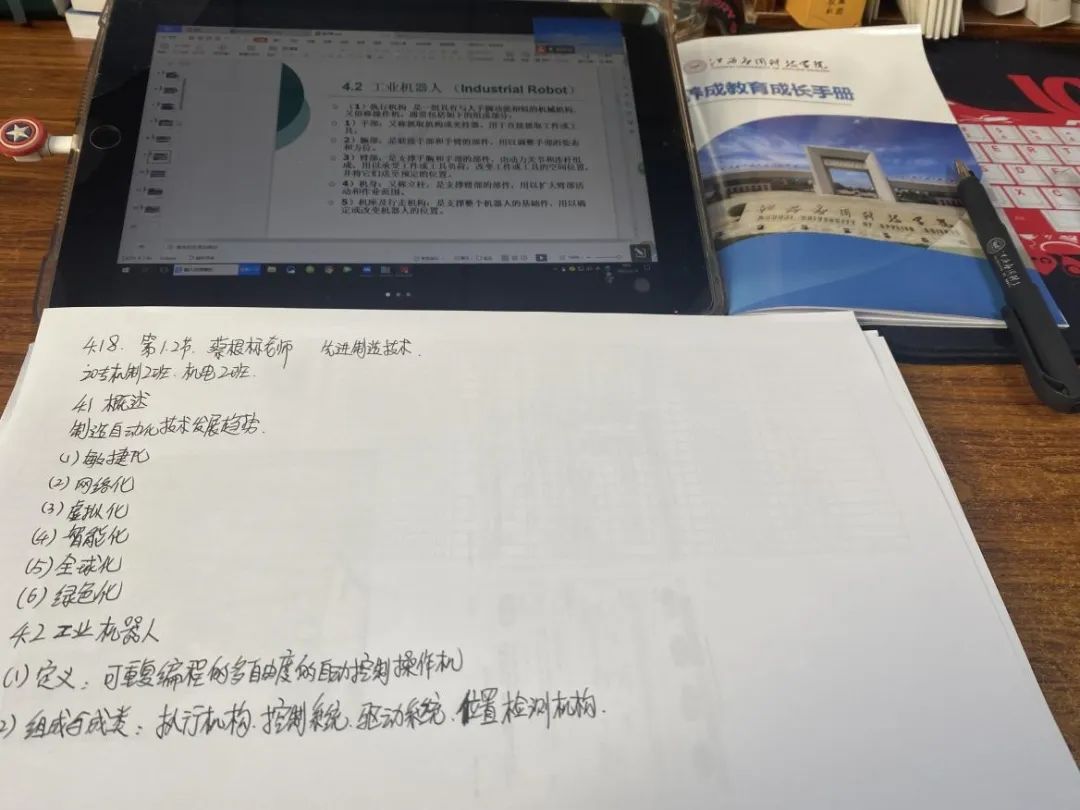 4.2 工业机器人 （Industrial Robot）
（1）执行机构 是一组具有与人手脚功能相似的机械机构，
又俗称操作机，通常包括如下的组成部分：
1）手部，又称抓取机构或夹持器，用于直接抓取工件或工
具。
2）腕部，是联接手部和手臂的部件，用以调整手部的姿态
和方位。
3）臂部，是支撑手腕和手部的部件，由动力关节和连杆组
成，用以承受工件或工具负荷，改变工件或工具的空间位置，
并将它们送至预定的位置。
4）机身，又称立柱，是支撑臂部的部件，用以扩大臂部活
动和作业范围。
5）机座及行走机构，是支撑整个机器人的基础件，用以确
定或改变机器人的位置。
江西应用科技学院
养成教育成长手册
江西应用科技学院
4.18. 第1.2节. 蔡根标老师 先进制造技术.
机制2班. 机电2班.
4.1 概述
制造自动化技术发展趋势.
(1) 敏捷化
(2) 网络化
(3) 虚拟化
(4) 智能化
(5) 全球化
(6) 绿色化
4.2 工业机器人
(1) 定义: 可重复编程的多自由度的自动控制操作机
2) 组成与成类: 执行机构. 控制系统. 驱动系统. 位置检测机构.